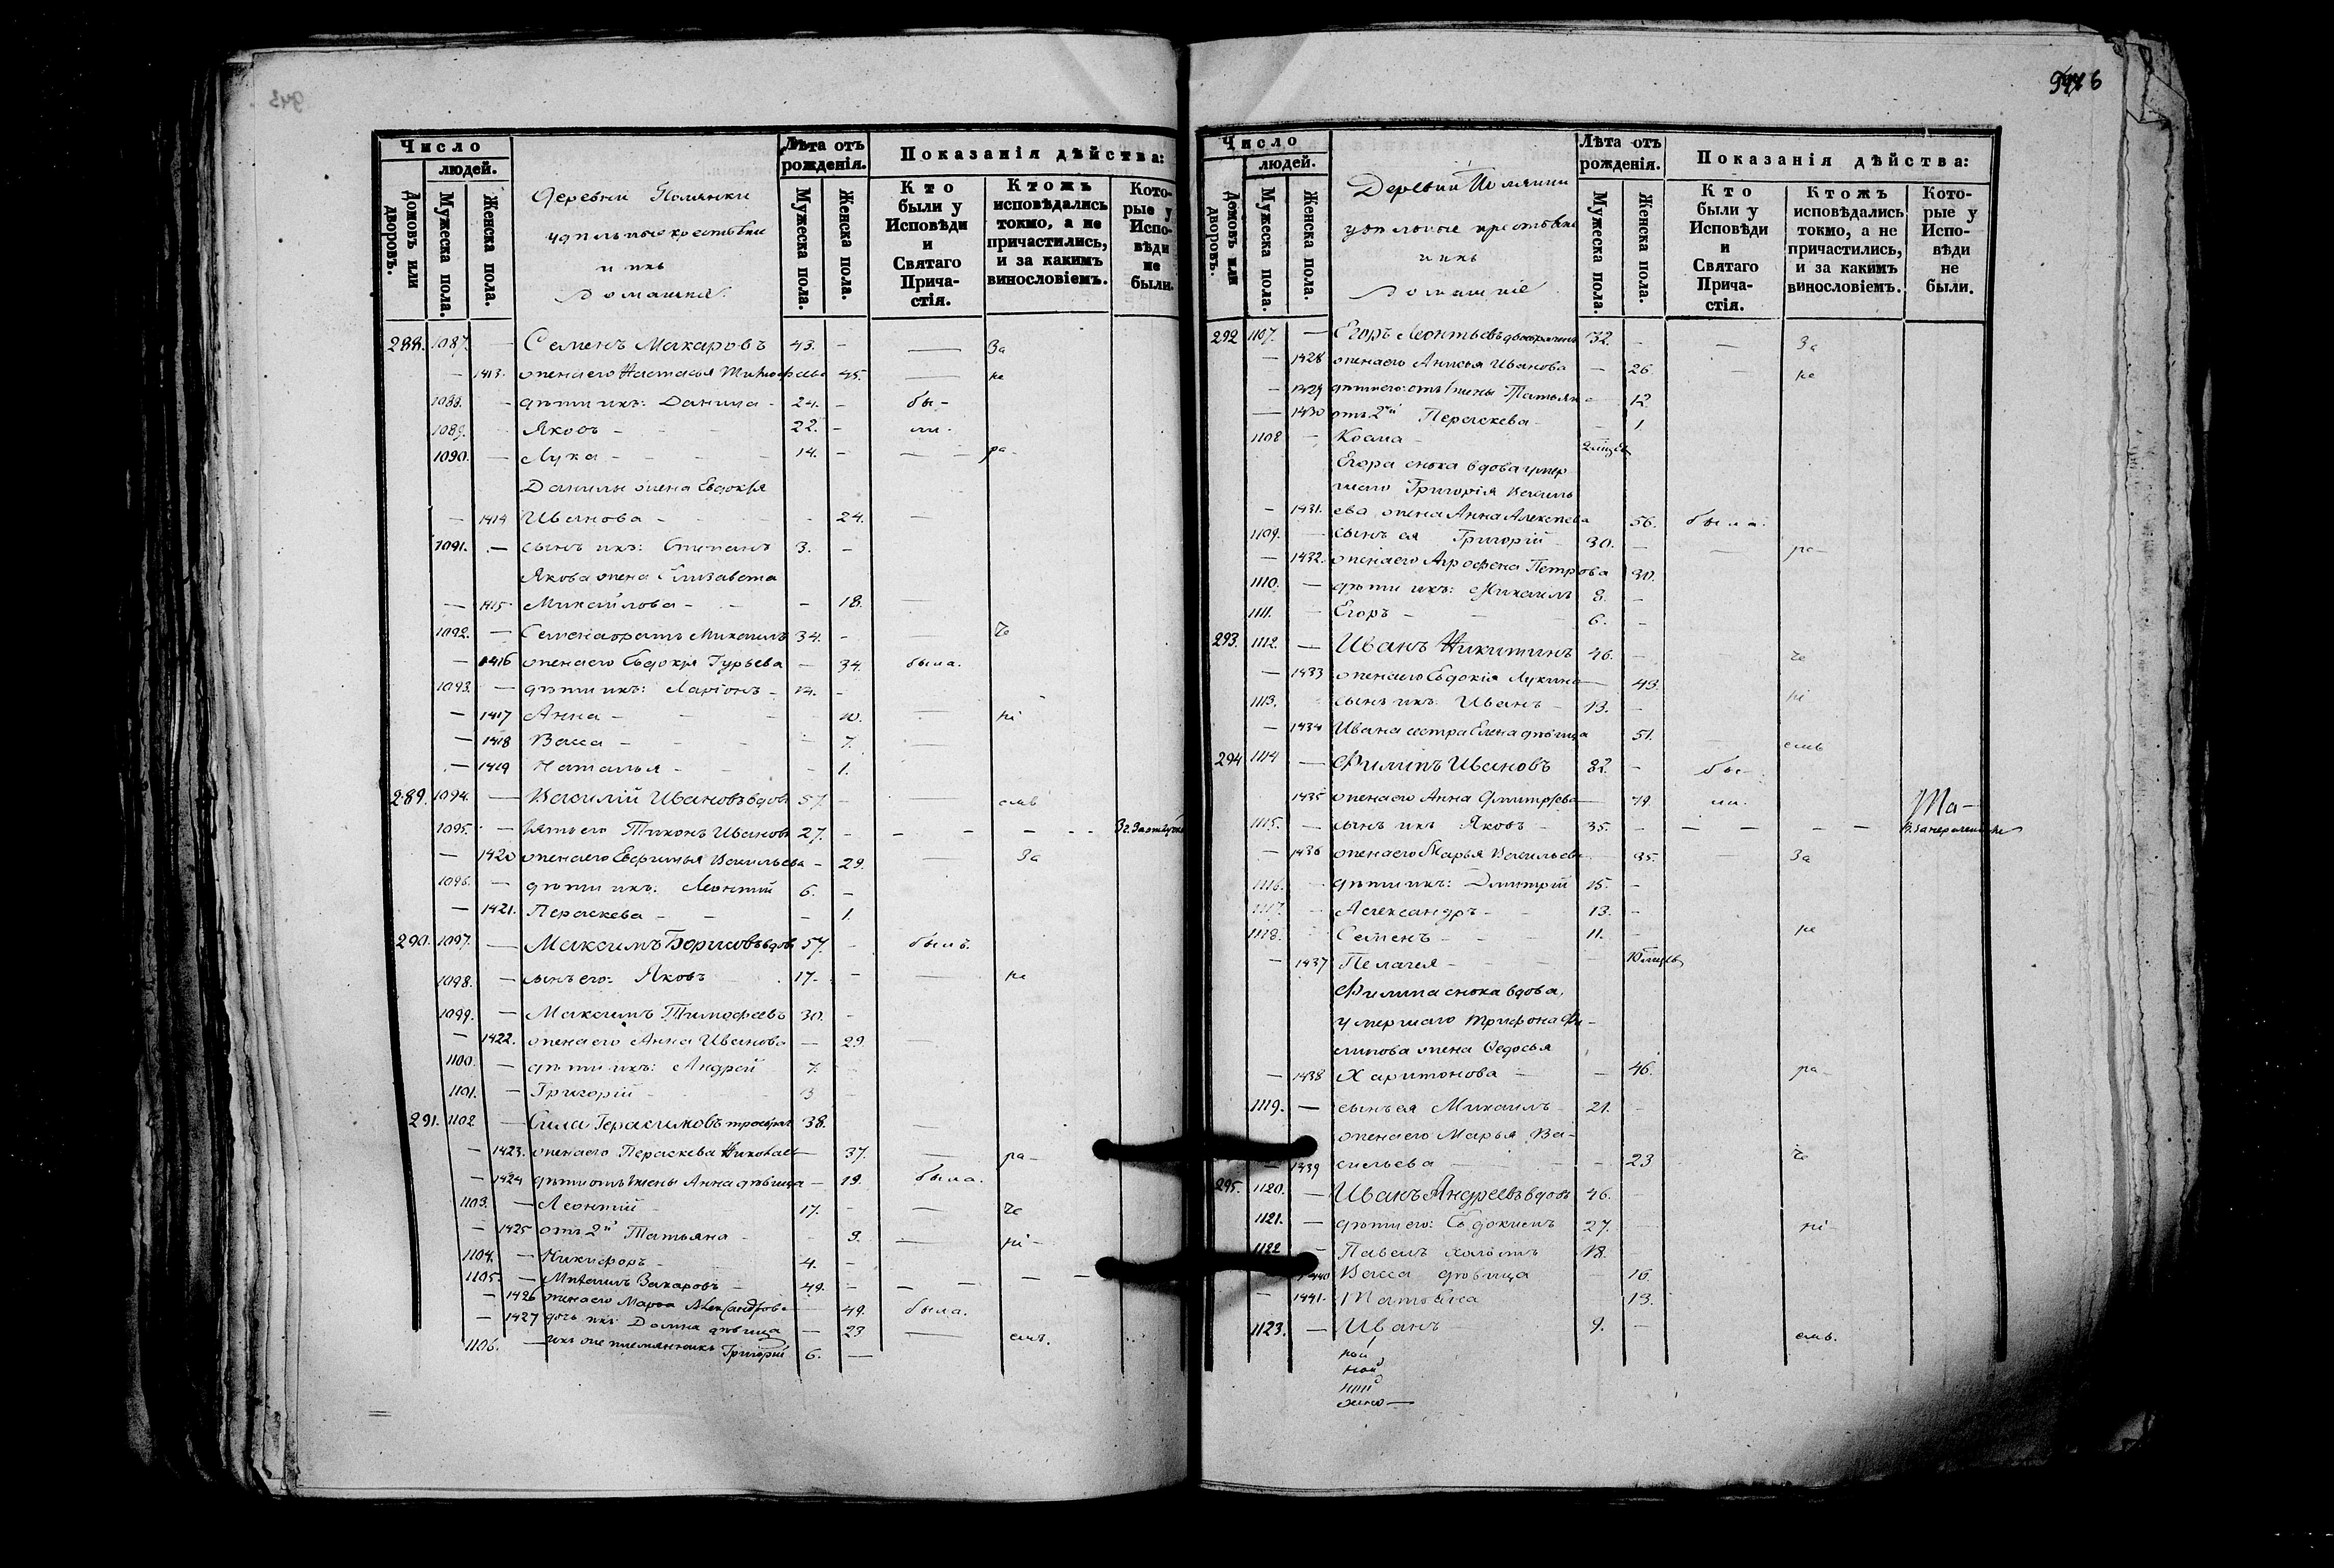 943
Число
людей.
Домовъ или дворовъ.
Мужеска пола.
Женска пола.
Деревни Полянки
удельные крестьяне
и ихъ
домашніе
Лѣта отъ рожденія.
Мужеска пола.
Женска пола.
Показанія дѣйства:
Кто были у Исповѣди и Святаго Прича-стія.
Ктожъ исповѣдались токмо, а не причастились, и за какимъ винословіемъ.
Кото-рые у Испо-вѣди не были.
288. 1087. — Семенъ Макаровъ 43. - — За
— 1413. жена его Настасья Тимофеева 45. — не
1088. - дѣти ихъ: Данила - 24. - бы-
1089. - Яковъ - - - 22. - ли.
1090. — Лука - - - - 14. - — — ра-
Данилы жена Евдокія
— 1414 Иванова - - - - 24. —
1091. — сынъ ихъ: Степанъ 3. -
Якова жена Елизавета
— 1415 Михайлова - - - 18. —
1092. — Семена братъ Михаилъ 34. - — че
— 1416 жена его Евдокія Гурьева — 34. была.
1093. — дѣти ихъ: Ларіонъ - 12. -
— 1417 Анна - - - - 10. — ні
— 1418 Васса - - - - 7. —
— 1419 Наталья - - - 1.
289. 1094. — Василій Ивановъ вдовъ 57. - — емъ
1095. — зять его Тихонъ Ивановъ 27. - - - - - -
— 1420 жена его Евфимья Васильева - 29. — За
1096. — дѣти ихъ: Леонтій 6. —
— 1421. Параскева - - - 1.
290. 1097. — Максимъ Борисовъ вдовъ 57. - былъ.
1098. — сынъ его: Яковъ 17. - — не
1099. — Максимъ Тимофеевъ 30. -
— 1422. жена его Анна Иванова — 29. —
1100. — дѣти ихъ: Андрей 7. -
1101. — Григорій - 3 -
291. 1102 — Сила Герасимовъ 38. —
— 1423. жена его Параскева Николаева — 37. — ра-
— 1424 дѣти отъ 1 жены Анна дѣвица - 19. была.
1103. — Леонтій 17. - — че
— 1425 отъ 2й Татьяна - 9. — ні -
1104. — Никифоръ - 4. -
1105. — Михаилъ Захаровъ - 49. - - — — —
— 1426 жена его Марфа Александрова — 49. была.
— 1427 дочь ихъ Домна дѣвица — 23 — емъ.
1106. — ихъ же племянникъ Григорій 6. —
Число
людей.
Домовъ или дворовъ.
Мужеска пола.
Женска пола.
Деревни Полянки
удельные крестьяне
и ихъ
домашніе
Лѣта отъ рожденія.
Мужеска пола.
Женска пола.
Показанія дѣйства:
Кто были у Исповѣди и Святаго Прича-стія.
Ктожъ исповѣдались токмо, а не причастились, и за какимъ винословіемъ.
Кото-рые у Испо-вѣди не были.
292 1107. — Егоръ Леонтьевъ 32. - — За
— 1428 жена его Анисья Иванова — 26 не
— 1429 дѣти его: отъ 1 жены Татьяна - 12.
— 1430 отъ 2й Параскева - - 1.
1108 — Косма -
Егора сноха вдова умер
шаго Григорія Василь
— 1431. ева жена Анна Алексеева 56. была.
1109. — сынъ ея Григорій - 30. - — ра-
— 1432. жена его Агрофена Петрова 30.
1110. — дѣти ихъ: Михаилъ 8. -
1111. — Егоръ - - - 6. -
293. 1112. — Иванъ Никитинъ 46. - че
— 1433 жена его Евдокія Лукина — 43.
1113. - сынъ ихъ Иванъ - 13. - ні
— 1434 Ивана сестра Елена дѣвица 51. емъ
294 1114 — Филипъ Ивановъ 82. - бы-
1435 жена его Анна Дмитріева — 79. ли.
1115. — сынъ ихъ Яковъ - 35. - — — — —
— 1436 жена его Марья Васильева — 35. — За
1116. - дѣти ихъ: Дмитрій 15. -
1117. - Александръ - 13. -
1118. - Семенъ - - 11. - не
— 1437 Пелагея - - -
Филипа сноха вдова,
умершаго Трифона Фи-
липова жена Федосья
— 1438 Харитонова — — 46. ра-
1119. — сынъ ея Михаилъ - 21. -
жена его Марья Ва-
1439 сильева — - - 23 че
295. 1120. — Иванъ Андреевъ вдовъ 46. -
1121. — дѣти его: Евдокимъ 27. ні-
1122 — Павелъ холостъ 18.
1440 Васса дѣвица - 16.
— 1441. Татьяна 13.
1123. — Иванъ 9. - емъ.